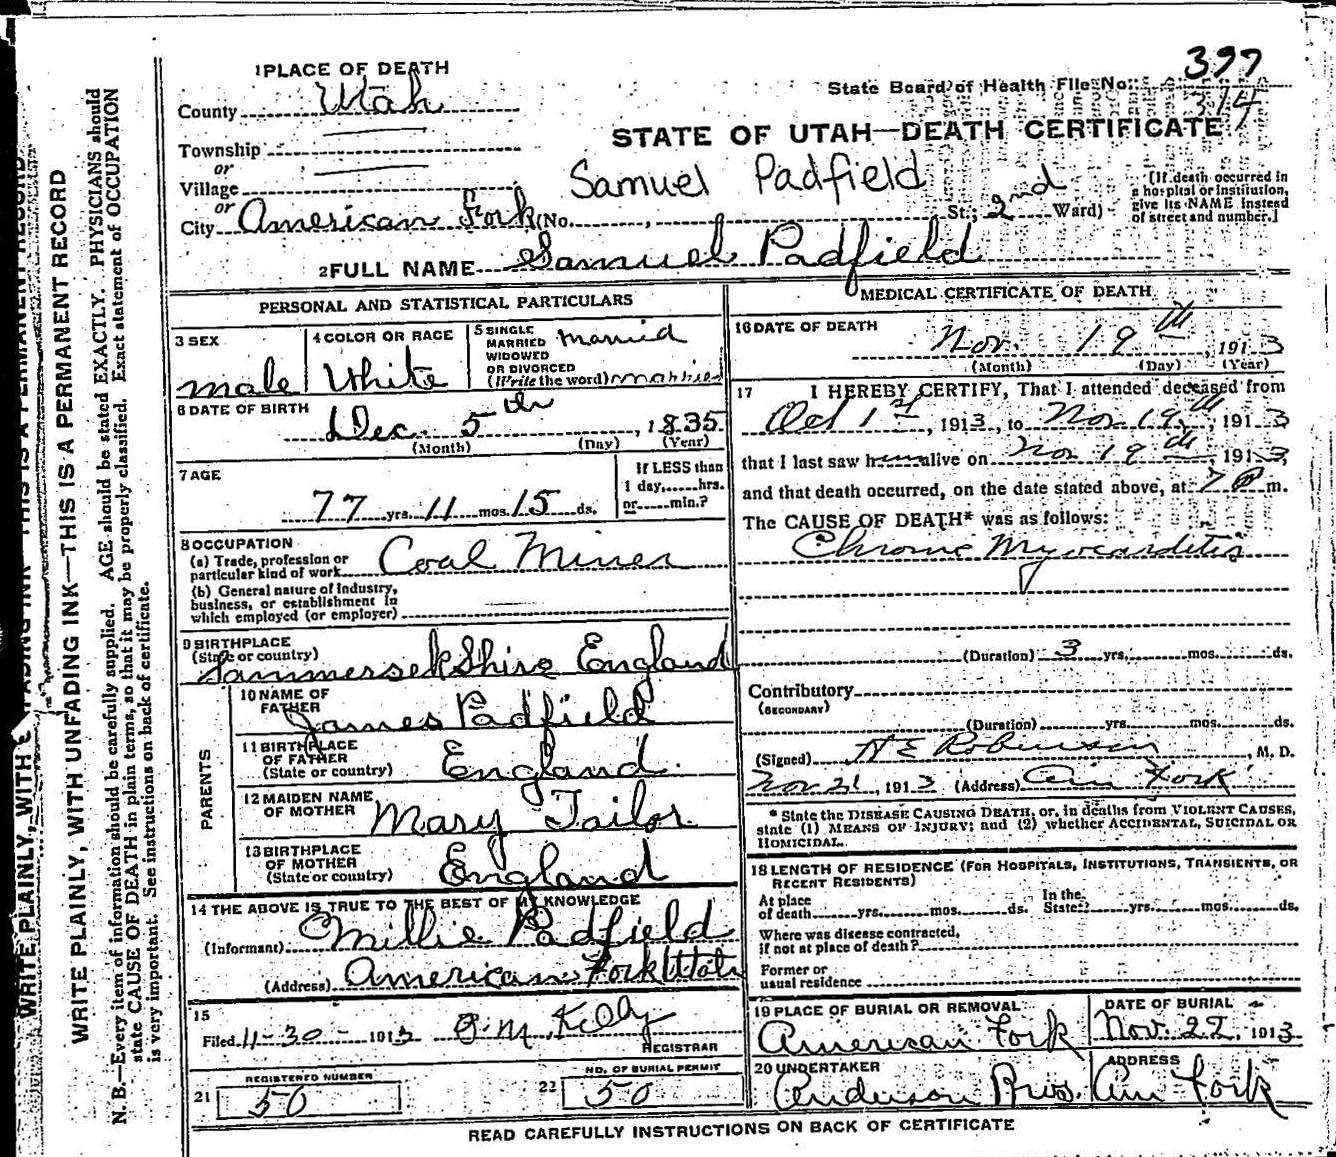 397
1 PLACE OF DEATH
State Board of Health File No. 314
County Utah
STATE OF UTAH—DEATH CERTIFICATE
Township
or
Village
Samuel Padfield
or
City American Fork (No. , St.; 2nd Ward)
[If death occurred in
a hospital or institution,
give its NAME instead
of street and number.]
2 FULL NAME Samuel Padfield
PERSONAL AND STATISTICAL PARTICULARS
3 SEX
male
4 COLOR OR RACE
White
5 SINGLE
MARRIED
WIDOWED
OR DIVORCED
(Write the word)
married
married
6 DATE OF BIRTH
Dec. 5th, 1835
(Month) (Day) (Year)
7 AGE
77 yrs. 11 mos. 15 ds.
If LESS than
1 day,......hrs.
or......min.?
8 OCCUPATION
(a) Trade, profession or
particular kind of work Coal Miner
(b) General nature of industry,
business, or establishment in
which employed (or employer)
9 BIRTHPLACE
(State or country)
Sammersekshire England
PARENTS
10 NAME OF
FATHER
James Padfield
11 BIRTHPLACE
OF FATHER
(State or country) England.
12 MAIDEN NAME
OF MOTHER Mary Tailor.
13 BIRTHPLACE
OF MOTHER
(State or country) England
14 THE ABOVE IS TRUE TO THE BEST OF MY KNOWLEDGE
(Informant) Millie Padfield
(Address) American Fork Utah
15
Filed 11-30- 1913 Kelly
REGISTRAR
REGISTERED NUMBER
21 50
NO. OF BURIAL PERMIT
22 50
MEDICAL CERTIFICATE OF DEATH
16 DATE OF DEATH
Nov. 19th, 1913
(Month) (Day) (Year)
17 I HEREBY CERTIFY, That I attended deceased from
Oct 1st, 1913, to Nov 19th, 1913
that I last saw him alive on Nov 19th, 1913,
and that death occurred, on the date stated above, at 7 P m.
The CAUSE OF DEATH* was as follows:
Chronic Myocarditis
(Duration) 3 yrs. mos. ds.
Contributory
(SECONDARY)
(Duration) yrs. mos. ds.
(Signed) Robinson, M. D.
Nov. 21, 1913 (Address) Am Fork
* State the DISEASE CAUSING DEATH, or, in deaths from VIOLENT CAUSES,
state (1) MEANS OF INJURY; and (2) whether ACCIDENTAL, SUICIDAL OR
HOMICIDAL.
18 LENGTH OF RESIDENCE (FOR HOSPITALS, INSTITUTIONS, TRANSIENTS, OR
RECENT RESIDENTS)
At place
of death yrs. mos. ds.
In the
State? yrs. mos. ds.
Where was disease contracted,
if not at place of death?
Former or
usual residence
19 PLACE OF BURIAL OR REMOVAL
American Fork
DATE OF BURIAL
Nov. 22, 1913
20 UNDERTAKER
Anderson Bros.
ADDRESS
Am Fork
READ CAREFULLY INSTRUCTIONS ON BACK OF CERTIFICATE
WRITE PLAINLY, WITH UNFADING INK—THIS IS A PERMANENT RECORD
N. B.—Every item of information should be carefully supplied. AGE should be stated EXACTLY. PHYSICIANS should
state CAUSE OF DEATH in plain terms, so that it may be properly classified. Exact statement of OCCUPATION
is very important. See instructions on back of certificate.